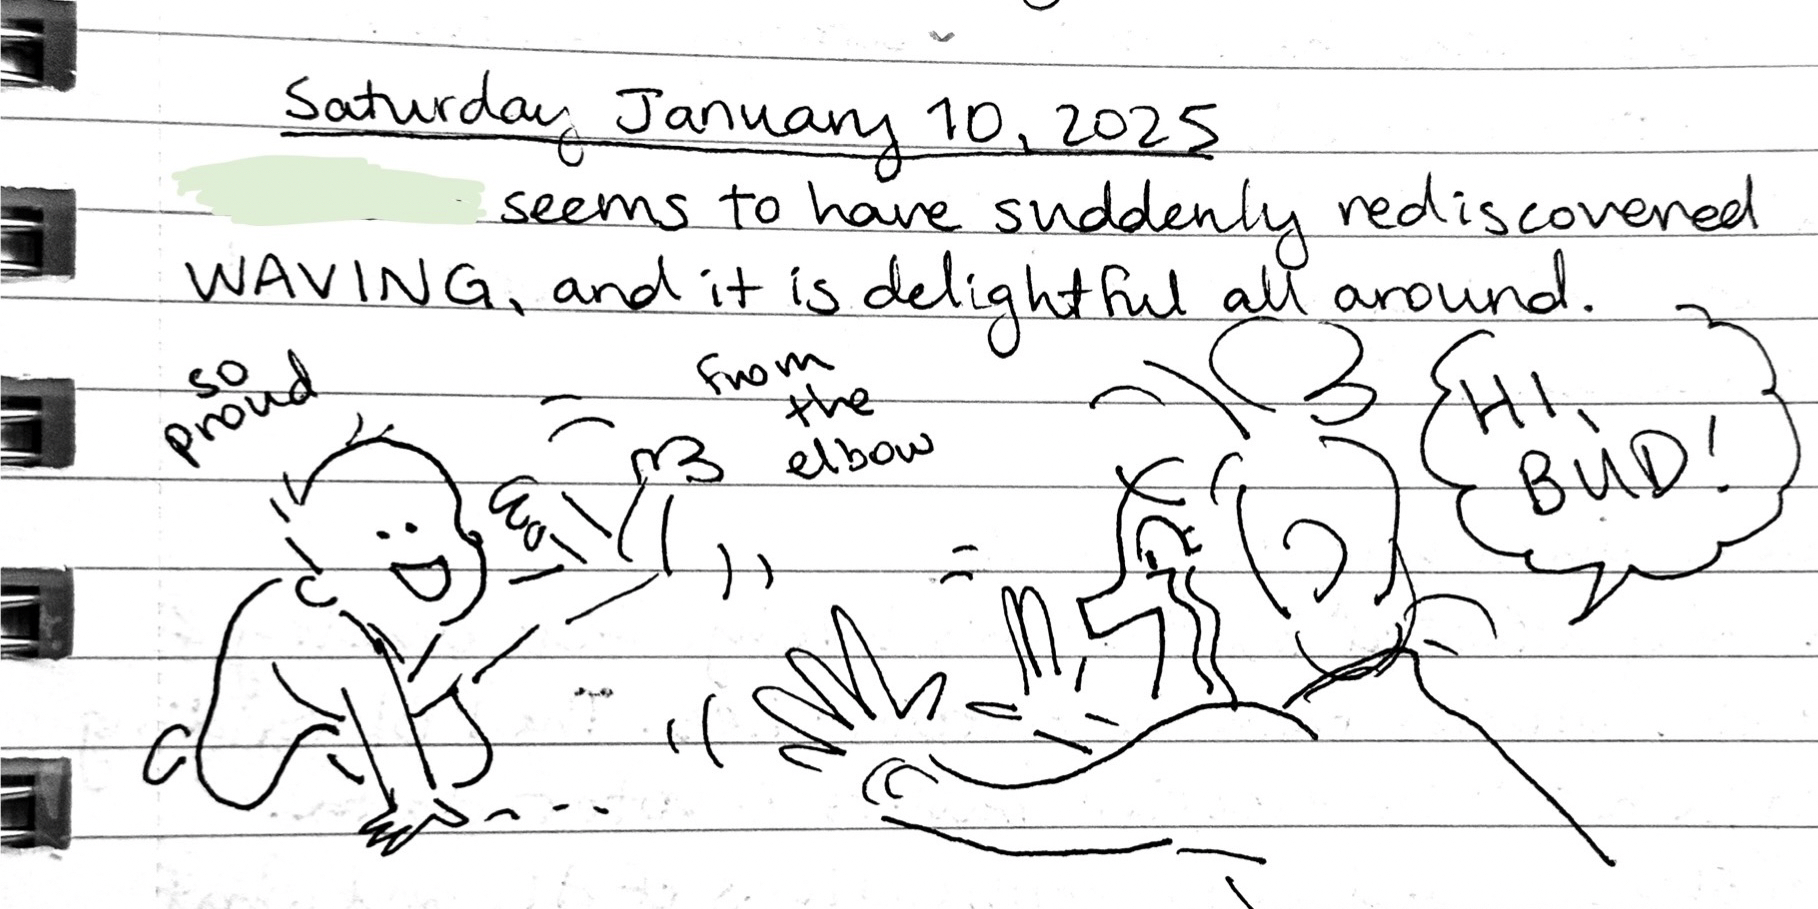 Saturday January 10, 2025
seems to have suddenly rediscovered
WAVING, and it is delightful all around.
so
proud
from
the
elbow
HI,
BUD!